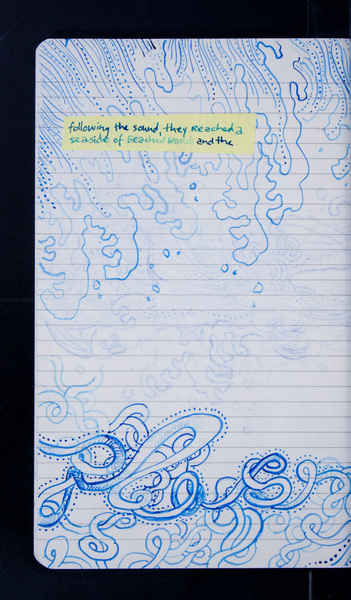 following the sound, they reached a
seaside of Beached words and the